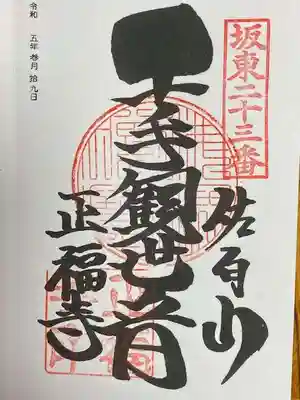 坂東二十三番
佐白山
千手観世音
正福寺
令和 五年 参月 拾九日